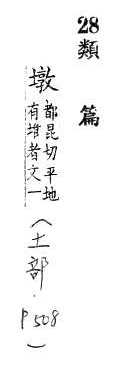 28類篇
墩都昆切平地
有堆者文一
（土部．
P508）